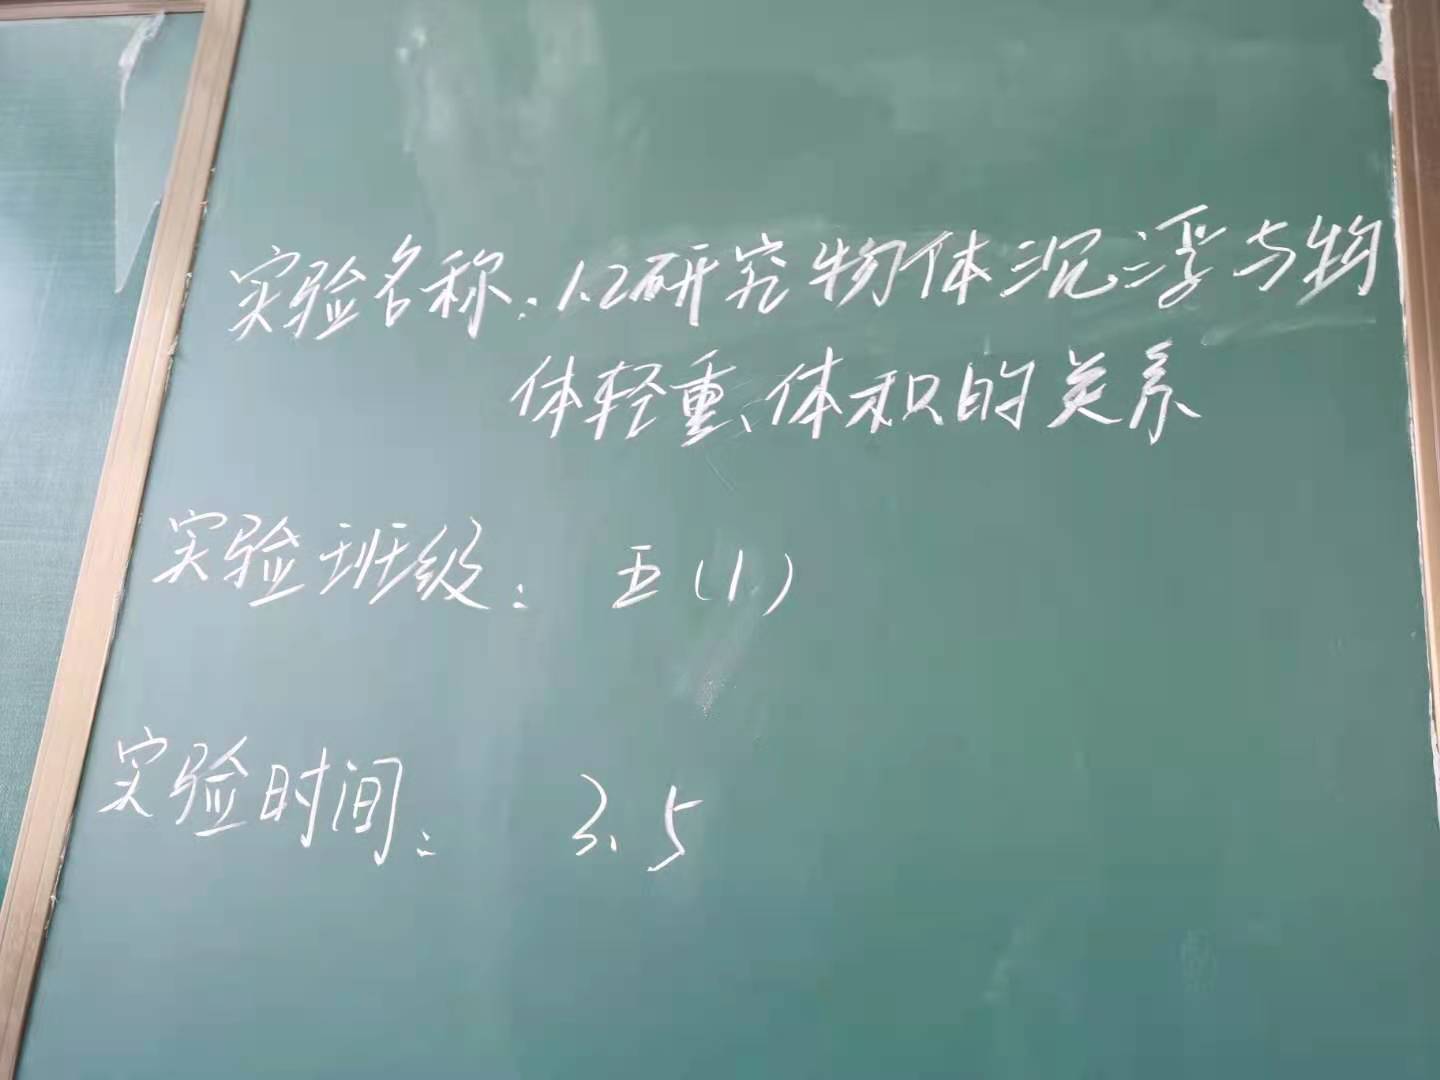 实验名称：1.2研究物体沉浮与物
体轻重、体积的关系
实验班级：五(1)
实验时间：3.5